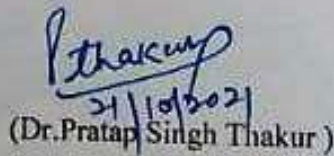 Pthakur
21/10/2021
(Dr.Pratap Singh Thakur )